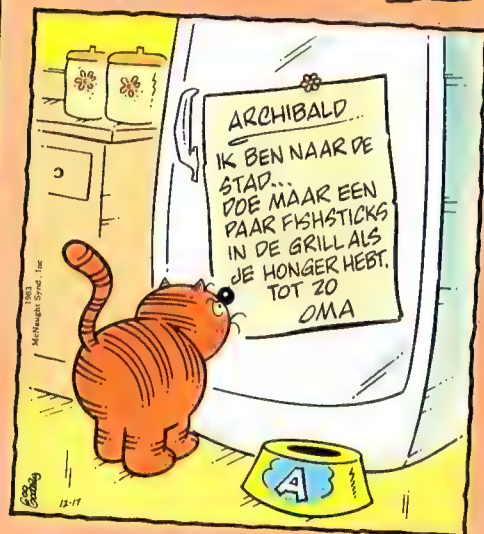 ARCHIBALD
IK BEN NAAR DE
STAD...
DOE MAAR EEN
PAAR FISHSTICKS
IN DE GRILL ALS
JE HONGER HEBT.
TOT ZO
OMA
1983
McNaught Synd., Inc
A
12-17